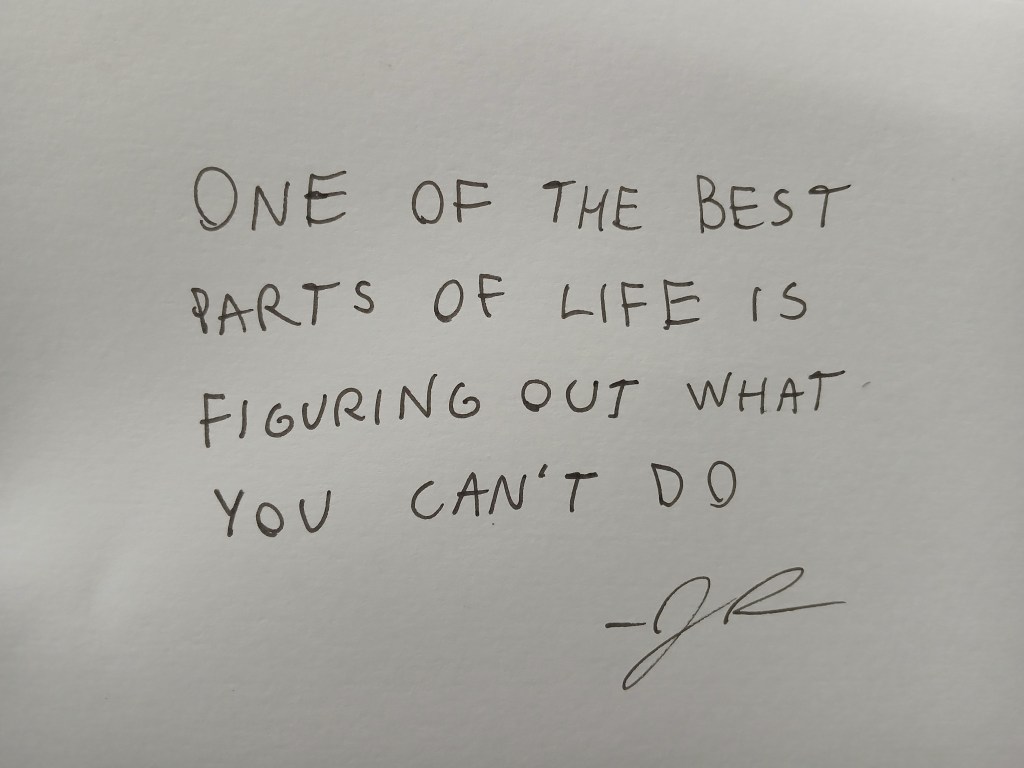 ONE OF THE BEST
PARTS OF LIFE IS
FIGURING OUT WHAT
YOU CAN'T DO
-JR